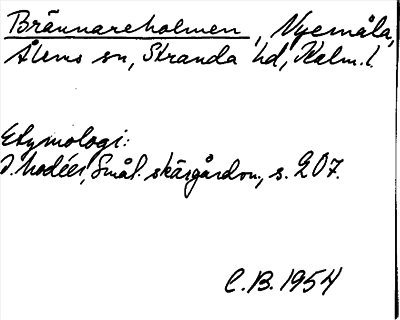 Brännareholmen, Nyemåla,
Ålems sn, Stranda hd, Kalm. l.
Etymologi:
J. Modéer, Smål. skärgårdsn., s. 207.
C.B. 1954